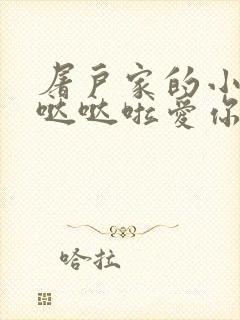 屠户家的小
哒哒啦爱你
哈拉